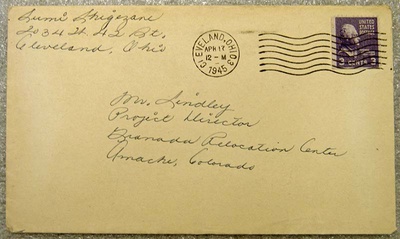 Sumi Shigezane
Cleveland, Ohio
CLEVELAND, OHIO 3
APR 17
12 - M
1945
UNITED STATES
POSTAGE
3 CENTS 3
Mr. Lindley
Project Director
Granada Relocation Center
Amache, Colorado